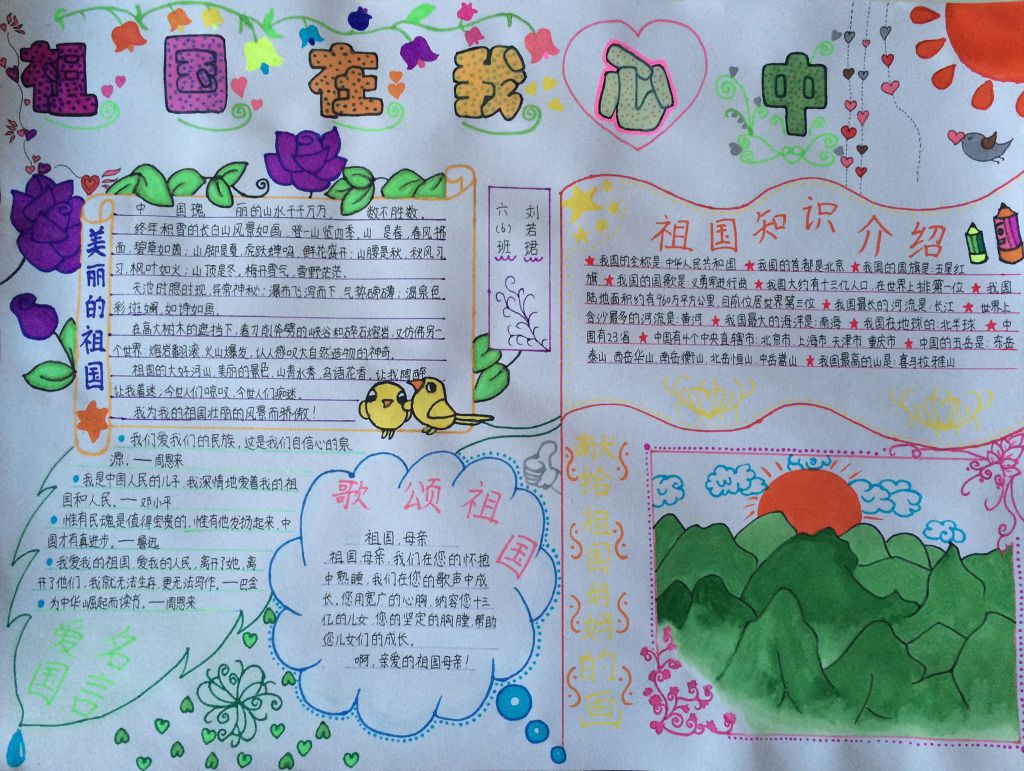 祖国在我心中
美丽的祖国
中 国瑰 丽的山水千千万万, 数不胜数。
终年积雪的长白山风景如画,登一山览四季。山 是春,春风拂
面,碧草如茵;山脚是夏,虎跃蝉鸣,鲜花盛开;山腰是秋,秋风习
习,枫叶如火;山顶是冬,梅开雪气,雪野茫茫。
天池时隐时现,异常神秘;瀑布飞泻而下,气势磅礴;温泉色
彩斑斓,如诗如画。
在高大树木的遮挡下,看刀削斧劈的峡谷和碎石熔岩,又仿佛另一
个世界:熔岩翻滚,火山爆发,让人感叹大自然造物的神奇。
祖国的大好河山,美丽的景色,山青水秀,鸟语花香,让我陶醉
让我着迷;令世人们惊叹,令世人们痴迷。
我为我的祖国壮丽的风景而骄傲!
刘若珺
六(6)班
祖国知识介绍
★我国的全称是:中华人民共和国 ★我国的首都是北京 ★我国的国旗是:五星红
旗 ★我国的国歌是:义勇军进行曲 ★我国大约有十三亿人口,在世界上排第一位 ★我国
陆地面积约有960万平方公里,目前位居世界第三位 ★我国最长的河流是:长江 ★世界上
含沙最多的河流是:黄河 ★我国最大的海洋是:南海 ★我国在地球的:北半球 ★中
国有23省 ★中国有4个中央直辖市:北京市、上海市、天津市、重庆市 ★中国的五岳是:东岳
泰山、西岳华山、南岳衡山、北岳恒山、中岳嵩山 ★我国最高的山是:喜马拉雅山
●我们爱我们的民族,这是我们自信心的泉
源。——周恩来
●我是中国人民的儿子,我深情地爱着我的祖
国和人民。——邓小平
●惟有民魂是值得宝贵的,惟有他发扬起来,中
国才有真进步。——鲁迅
●我爱我的祖国,爱我的人民,离开了她,离
开了他们,我就无法生存,更无法写作。——巴金
●为中华崛起而读书。——周恩来
爱国名言
歌颂祖国
祖国,母亲
祖国,母亲,我们在您的怀抱
中熟睡,我们在您的歌声中成
长。您用宽广的心胸,纳容您十三
亿的儿女,您的坚定的胸膛,帮助
您儿女们的成长。
啊,亲爱的祖国母亲!
献给祖国妈妈的画